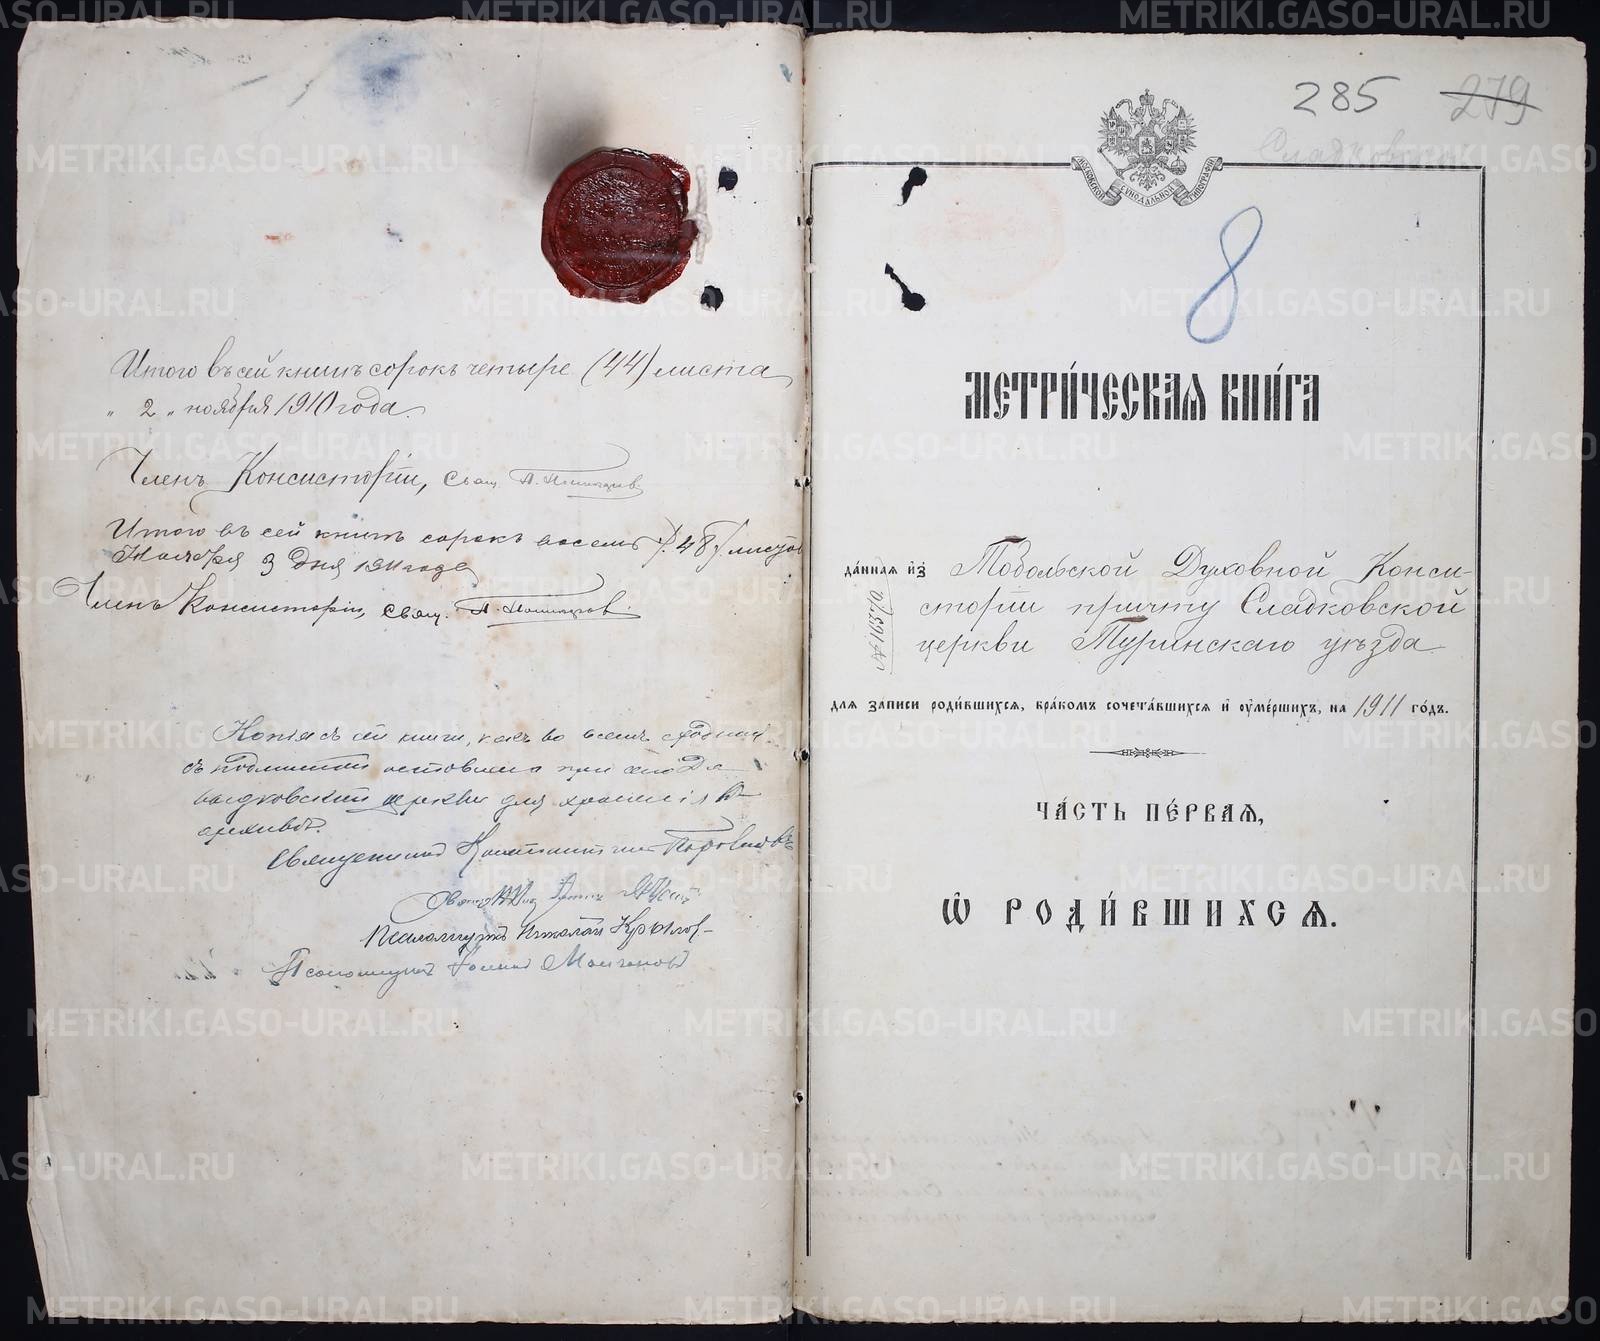 Итого въ сей книгѣ сорокъ четыре (44) листа
„ 2 „ ноября 1910 года.
Членъ Консисторіи, Свящ.
Итого въ сей книгѣ сорокъ восемь (48) листовъ
Ноября 3 дня 1911 года
Членъ Консисторіи, Свящ.
Копія съ сей книги, какъ во всемъ сходная
съ подлинной оставлена при
церкви для храненія въ
архивѣ.
Священникъ Константинъ
Псаломщикъ Николай Крылов
Псаломщикъ
285 279
МОСКОВСКОЙ СУНОДАЛЬНОЙ ТИПОГРАФІИ
8
МЕТРИ́ЧЕСКАЯ КНИ́ГА
да́нная и҆з̾ Тобольской Духовной Конси-
сторіи причту Сладковской
церкви Туринскаго уѣзда
для записи роди́вшихся, бра́комъ сочета́вшихся и҆ ᲂу҆ме́ршихъ, на 1911 го́дъ.
ЧА́СТЬ ПЕ́РВАЯ,
Ѽ РОДИ́ВШИХСЯ.
METRIKI.GASO-URAL.RU